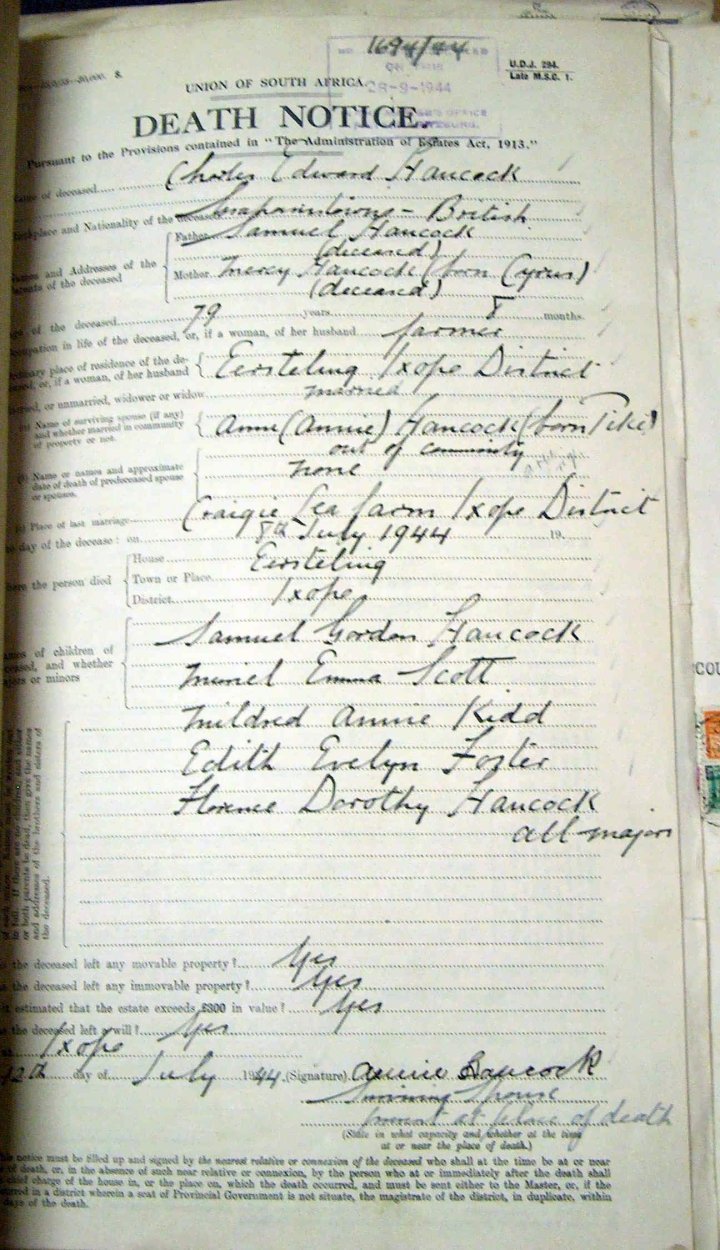 1694/44
28-9-1944
U.D.J. 294.
Late M.S.C. 1.
UNION OF SOUTH AFRICA.
DEATH NOTICE.
Pursuant to the Provisions contained in "The Administration of Estates Act, 1913."
Name of deceased Charles Edward Hancock
Birthplace and Nationality of the deceased - British
Father Samuel Hancock
(deceased)
Names and Addresses of the
parents of the deceased
Mother Mercy Hancock (born Cyrus)
(deceased)
of the deceased 79 years 8 months
occupation in life of the deceased, or, if a woman, of her husband farmer
ordinary place of residence of the de-
ceased, or, if a woman, of her husband
Eersteling Ixopo District
married, or unmarried, widower or widow married
Name of surviving spouse (if any)
and whether married in community
of property or not.
Anne (Annie) Hancock (born Pike)
out of community
Name or names and approximate
date of death of predeceased spouse
or spouses.
none
Place of last marriage Craigie Lea farm Ixopo District
day of the decease: on 8th July 1944 19
where the person died
House Eersteling
Town or Place
District Ixopo
names of children of
deceased, and whether
majors or minors
Samuel Gordon Hancock
Muriel Emma Scott
Mildred Annie Kidd
Edith Evelyn Foster
Florence Dorothy Hancock
all majors
or both parents be dead, then give the names
and addresses of the brothers and sisters of
the deceased.
the deceased left any movable property? Yes
the deceased left any immovable property? Yes
estimated that the estate exceeds £300 in value? Yes
the deceased left a will? Yes
Ixopo
12th day of July 1944. (Signature) Annie Hancock
Surviving spouse
present at place of death
(State in what capacity and whether at the time
at or near the place of death.)
This notice must be filled up and signed by the nearest relative or connexion of the deceased who shall at the time be at or near
of death, or, in the absence of such near relative or connexion, by the person who at or immediately after the death shall
chief charge of the house in, or the place on, which the death occurred, and must be sent either to the Master, or, if the
occurred in a district wherein a seat of Provincial Government is not situate, the magistrate of the district, in duplicate, within
days of the death.
COU